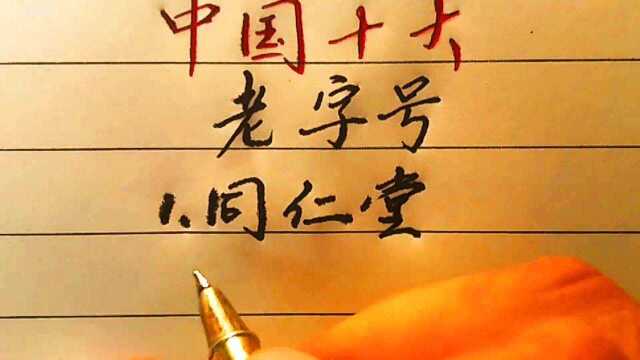 中国十大
老字号
1、同仁堂